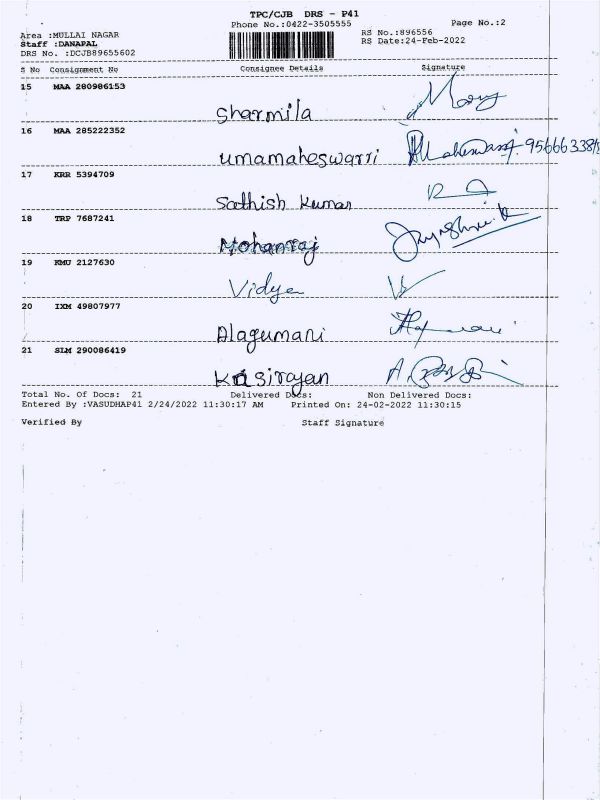 TPC/CJB DRS - P41
Phone No.:0422-3505555
Page No.:2
Area :MULLAI NAGAR
RS No.:896556
Staff :DANAPAL
RS Date:24-Feb-2022
DRS No. :DCJB89655602
S No Consignment No Consignee Details Signature
15 MAA 280986153
Sharmila
16 MAA 285222352
umamaheswarri
17 KRR 5394709
Sathish Kumar
18 TRP 7687241
Mohanraj
19 KMU 2127630
Vidya
20 IXM 49807977
Alagumani
21 SLM 290086419
Kasirajan
Total No. Of Docs: 21 Delivered Docs: Non Delivered Docs:
Entered By :VASUDHAP41 2/24/2022 11:30:17 AM Printed On: 24-02-2022 11:30:15
Verified By Staff Signature